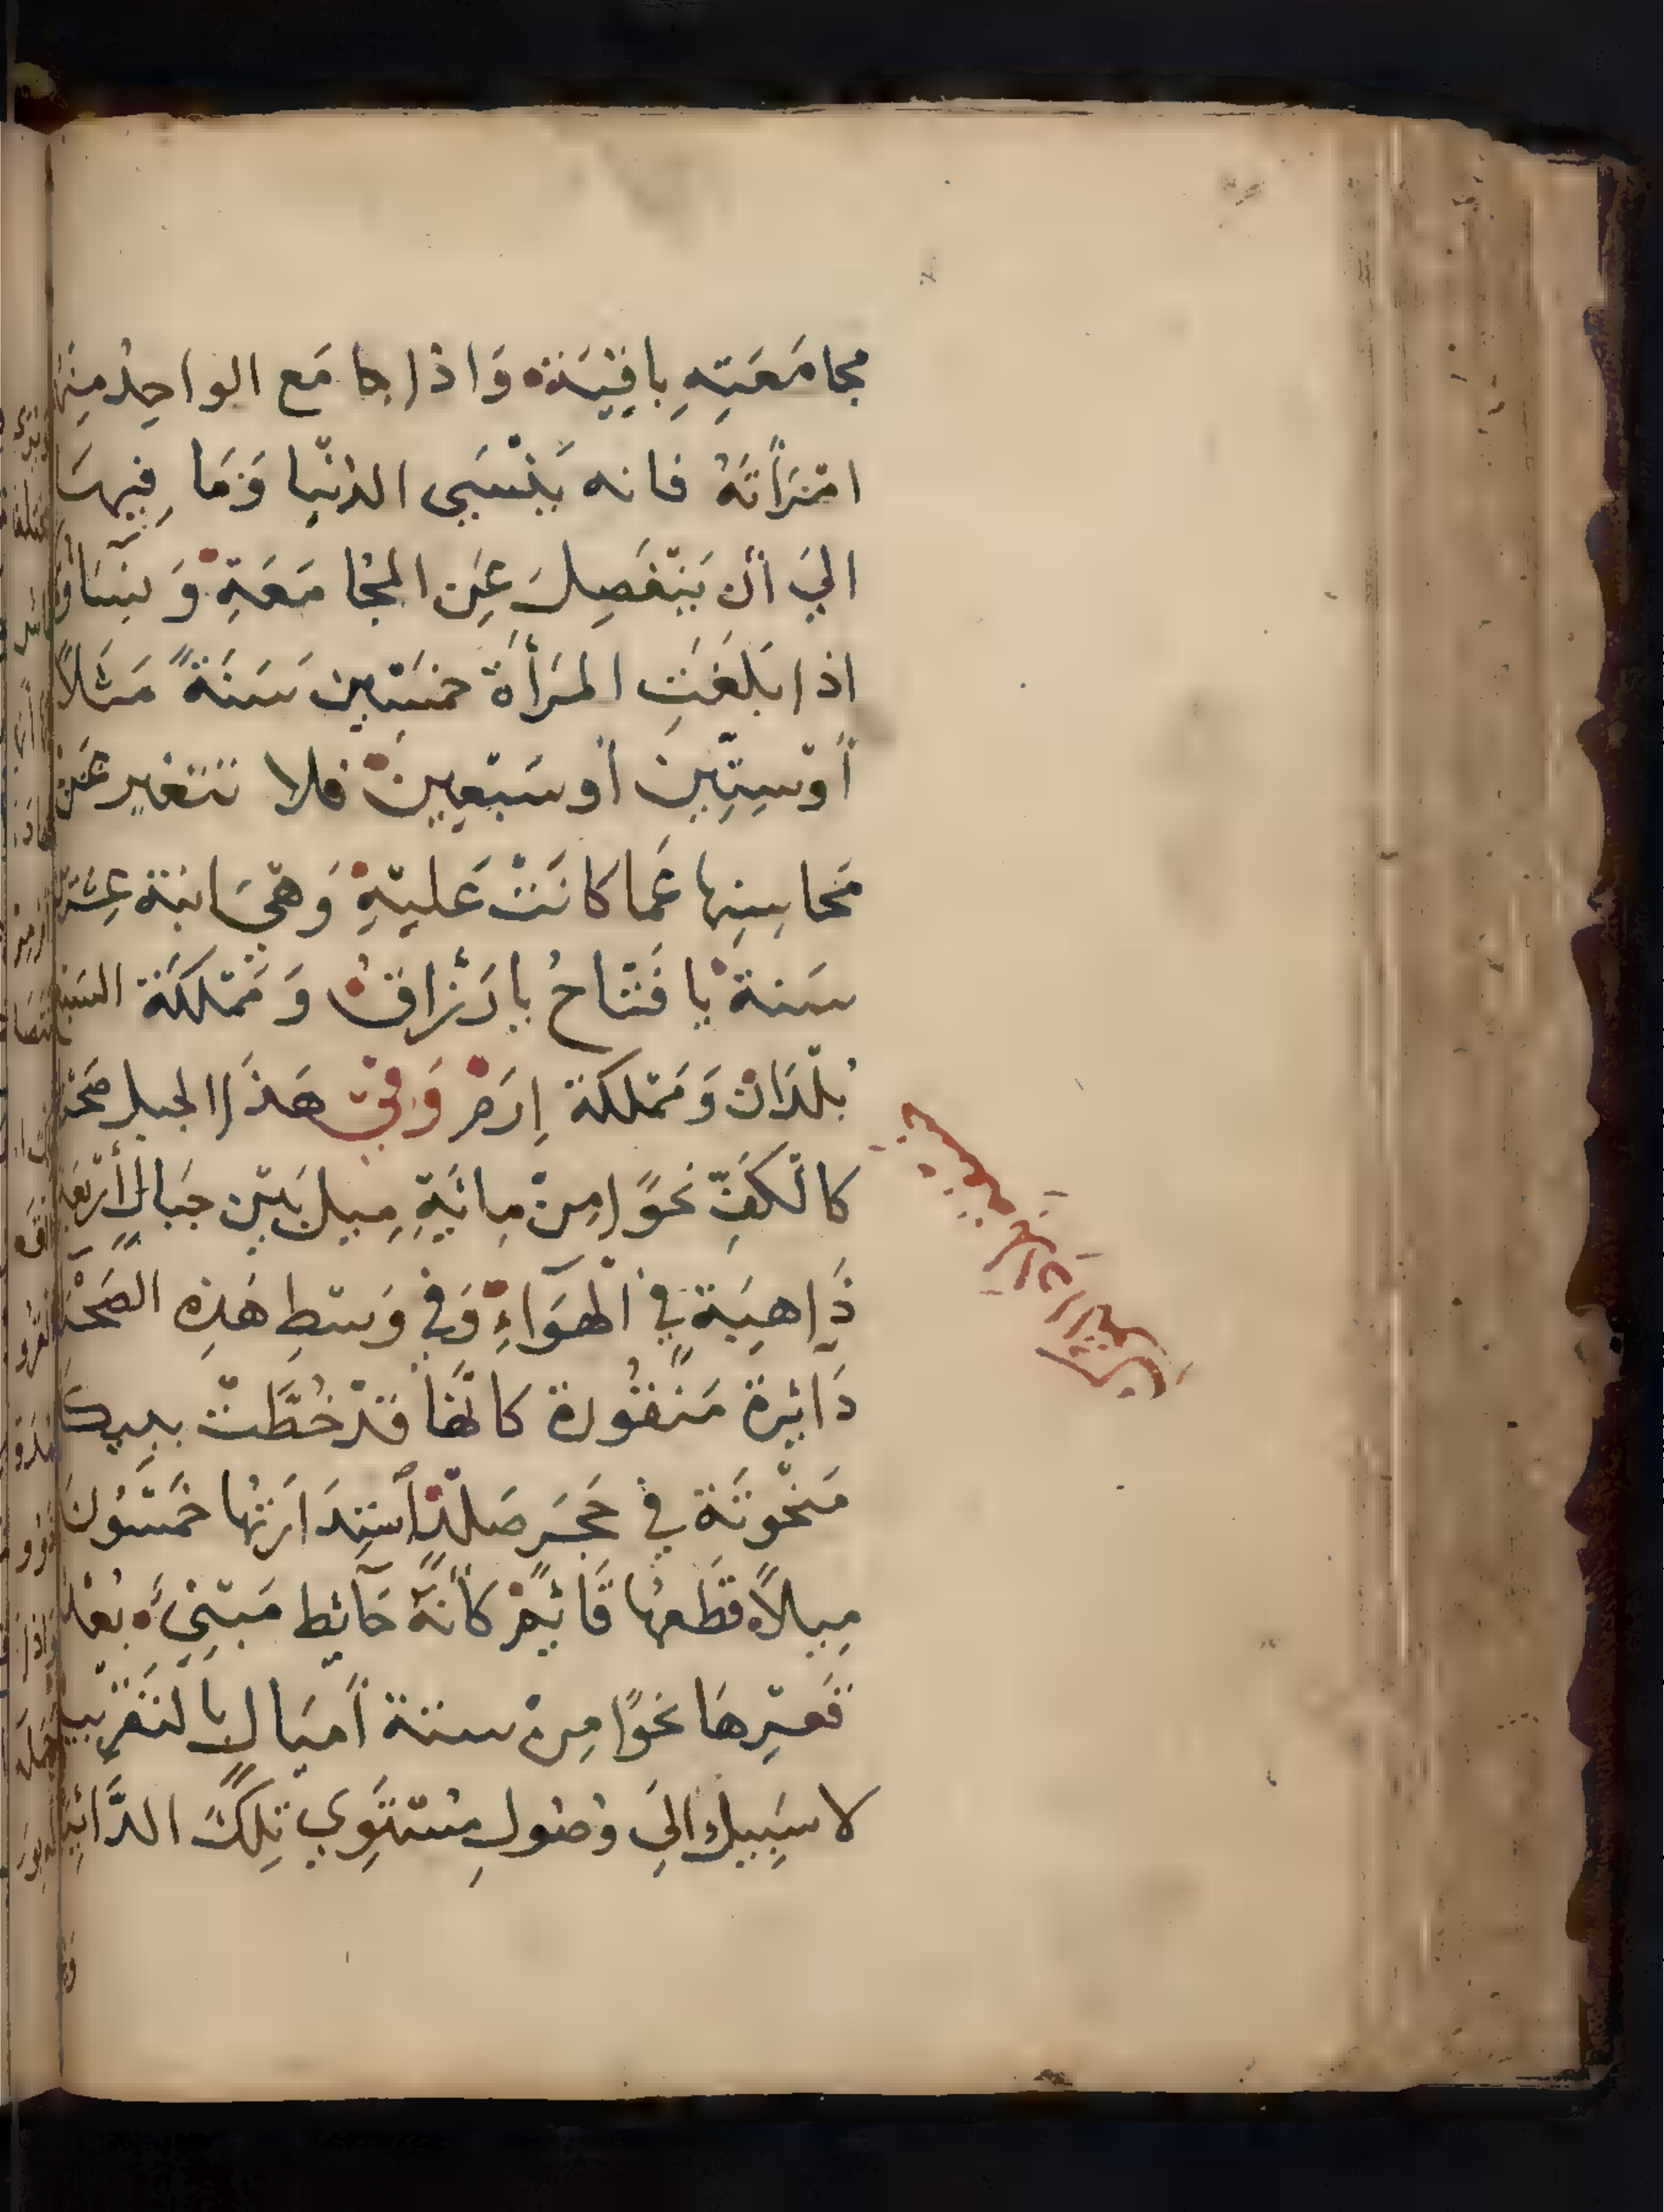 مجامَعَتِهِ بِاقِيَة وَاذا جامَع الواحِد مِنهُ
امْرَأتَهُ فانه يَنْسَي الدُنْيا وَمَا فِيهَا
اليَ أن يَنْفَصِلَ عَنِ المجُامَعَةِ وَنِسَاؤ
اذا بَلَغَتِ المرَأَة خمَسِين سَنَةً مَثَلاً
أوْ سِتِّينَ أو سَبْعِينَ فلا تتغير عَنْ
مَحاسِنِها عَما كانَتْ عَليْهِ وَهْيَ ابنة عِشْر
سَنة يا فَتَاحُ يا رَزاقُ وَمَمْلكَة السَبع
بُلْدَان وَمَمْلكة إرَمْ وَفيْ هَذا الجبل صَحْر
كالكَفِّ نحَوًا مِنْ مِائيَةِ مِيلٍ بَيْن جبَالٍ أرْبعَة
ذَاهِبَة فِي الْهوَآءِ وَفي وَسْطِ هَذِه الصَحْر
دَآئِرة مَنقُورة كانَّها قَدْ خُطَّتْ ببِيكَ
مَنْحُوتَة فِي حَجَرٍ صَلْدٍ اسْتِدَارَتُها خمَسُونَ
مِيلاً قَطْعهُا قَائِمْ كأنَّهُ حَآئِط مَبْنيٌ بُعْد
قَعْرِهَا نحوًا مِنْ ستة أميَالٍ بِالتَقْرِيب
لا سَبِيلَ اليَ وُصُولِ مُسْتَوِي تِلكَ الدَّائِر